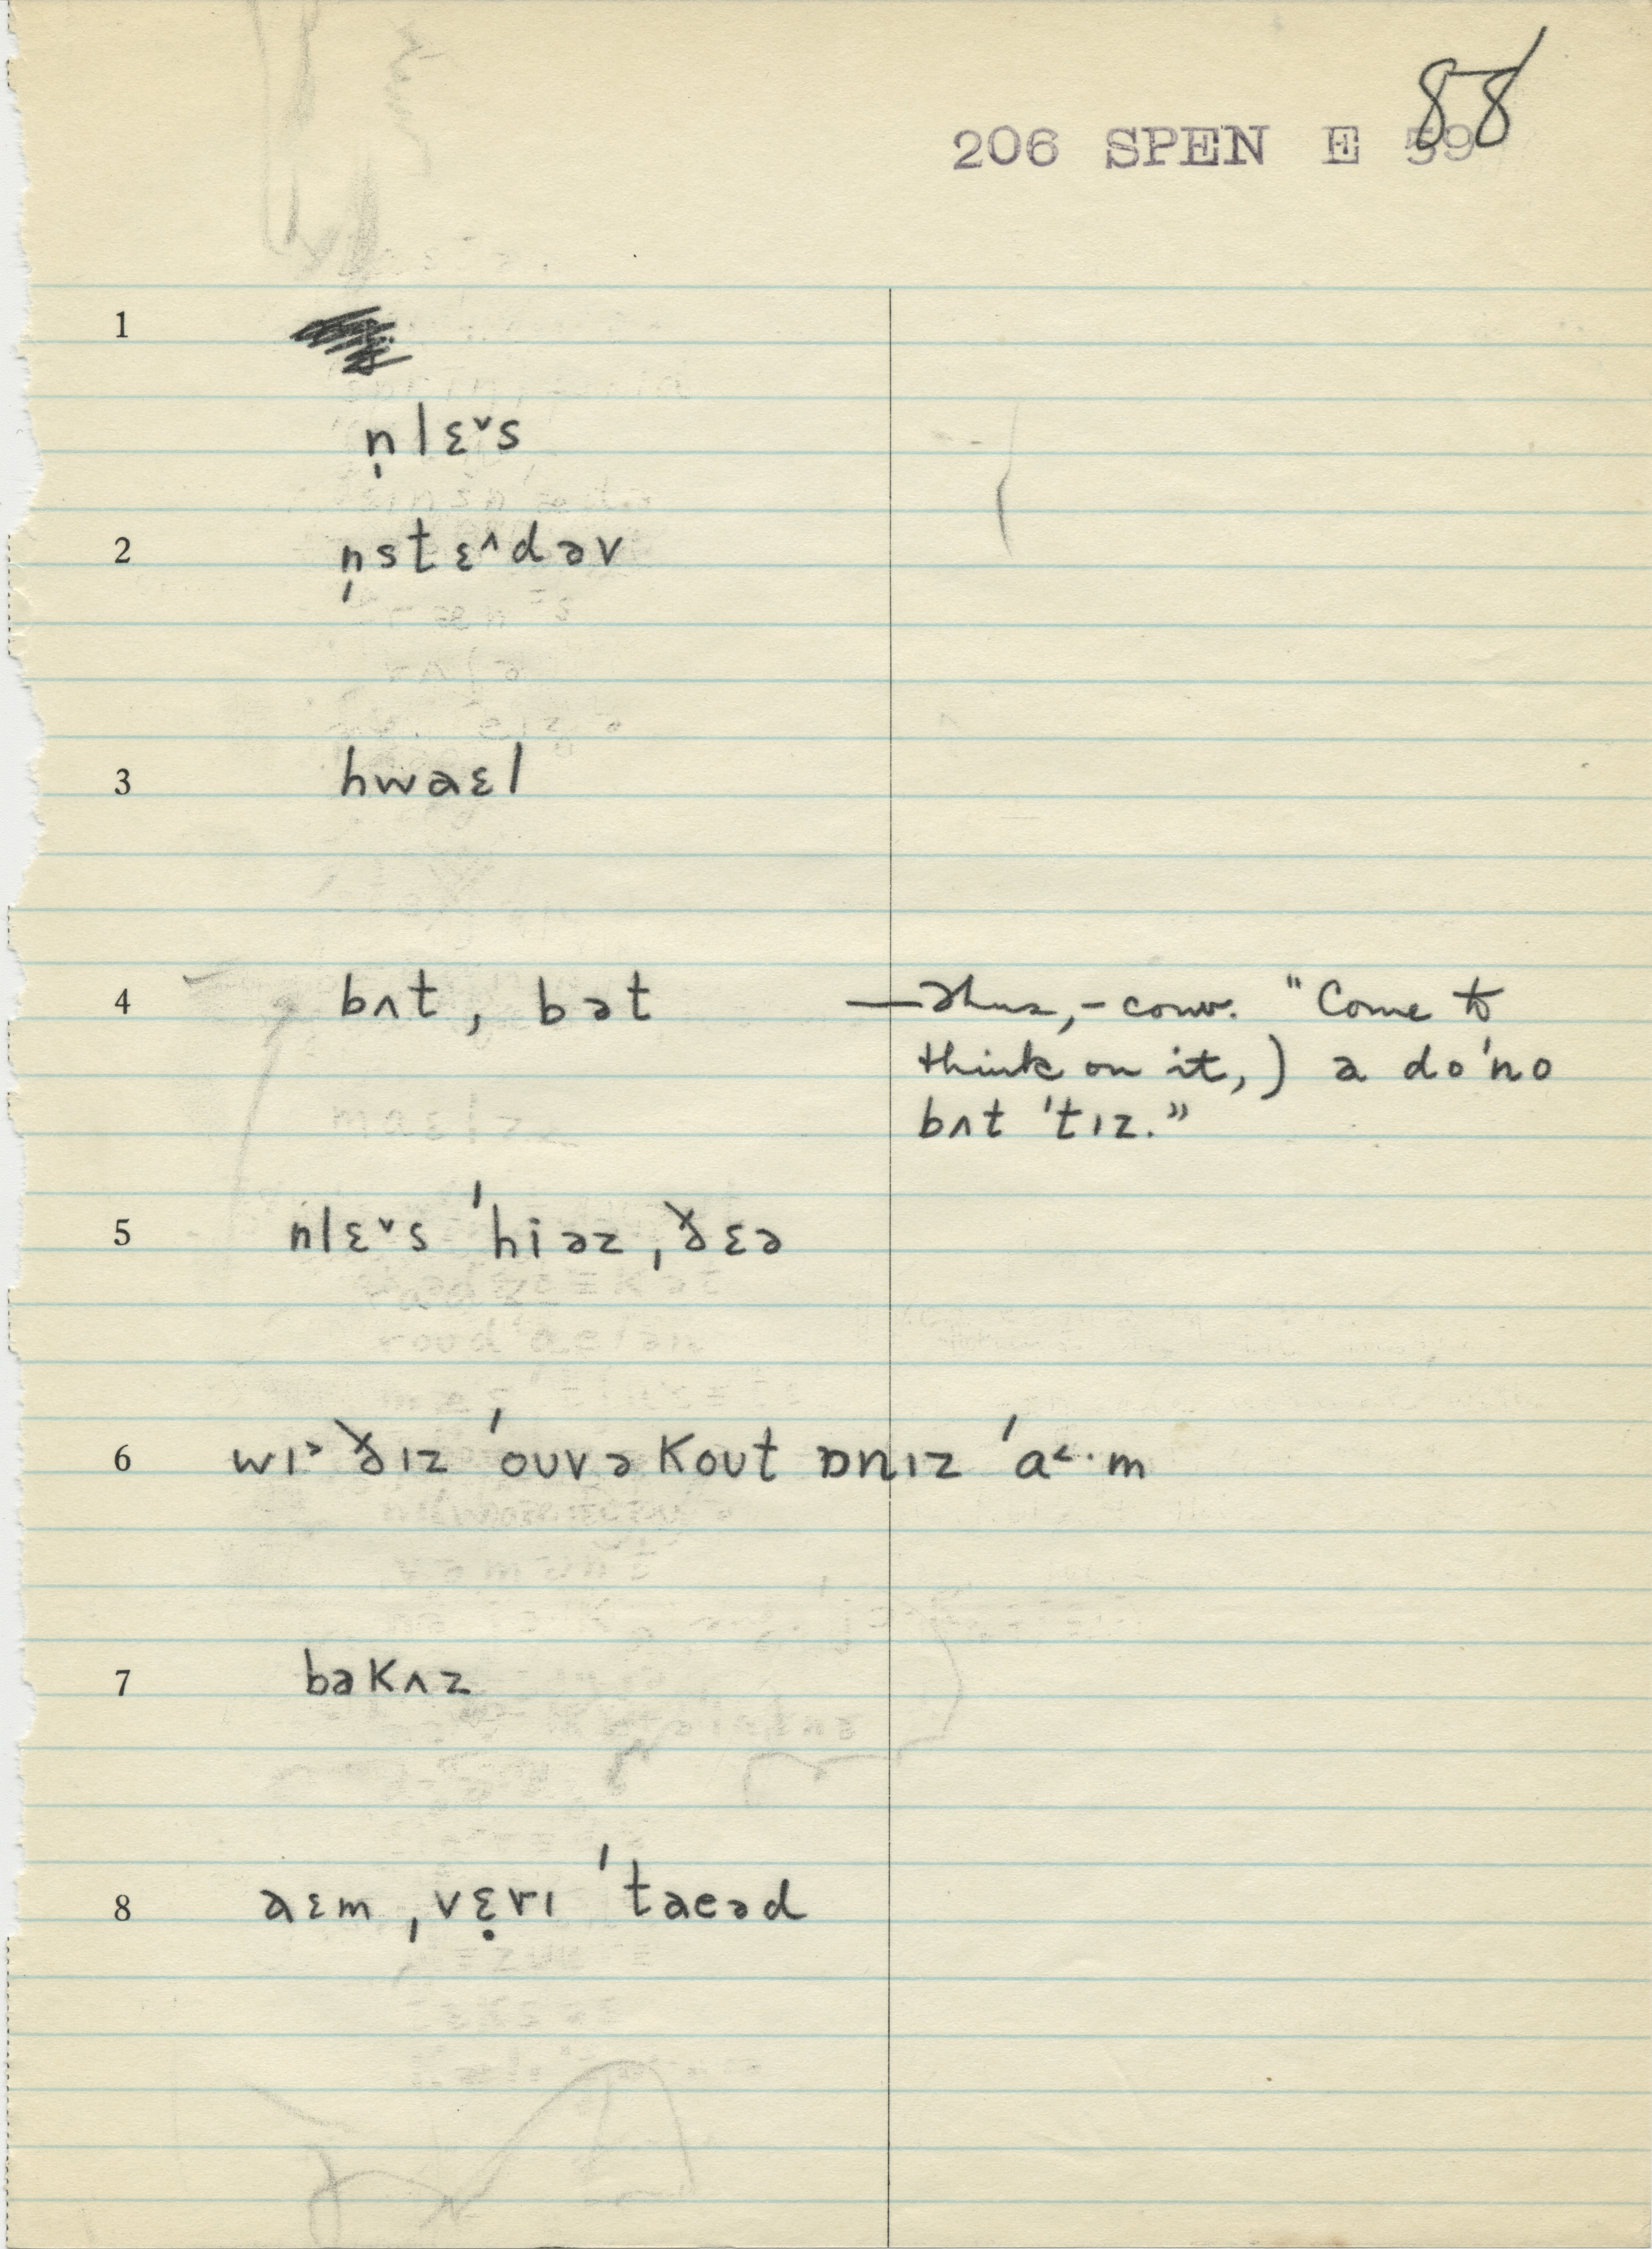 88
206 SPEN E 59
1
n̩lɛ˅s
2 n̩stɛ˄dəv
3 hwaɛl
4 bʌt, bət — Thus, – conv. "Come to
think on it,) a do'no
bʌt 'tɪz."
5 nlɛ˅s 'hiəz, ðɛə
6 wɪ˃ ðɪz 'ouvəkout ɒnɪz 'a˂·m
7 bəkʌz
8 aɛm ˌvɛ̣rɪ 'taeəd